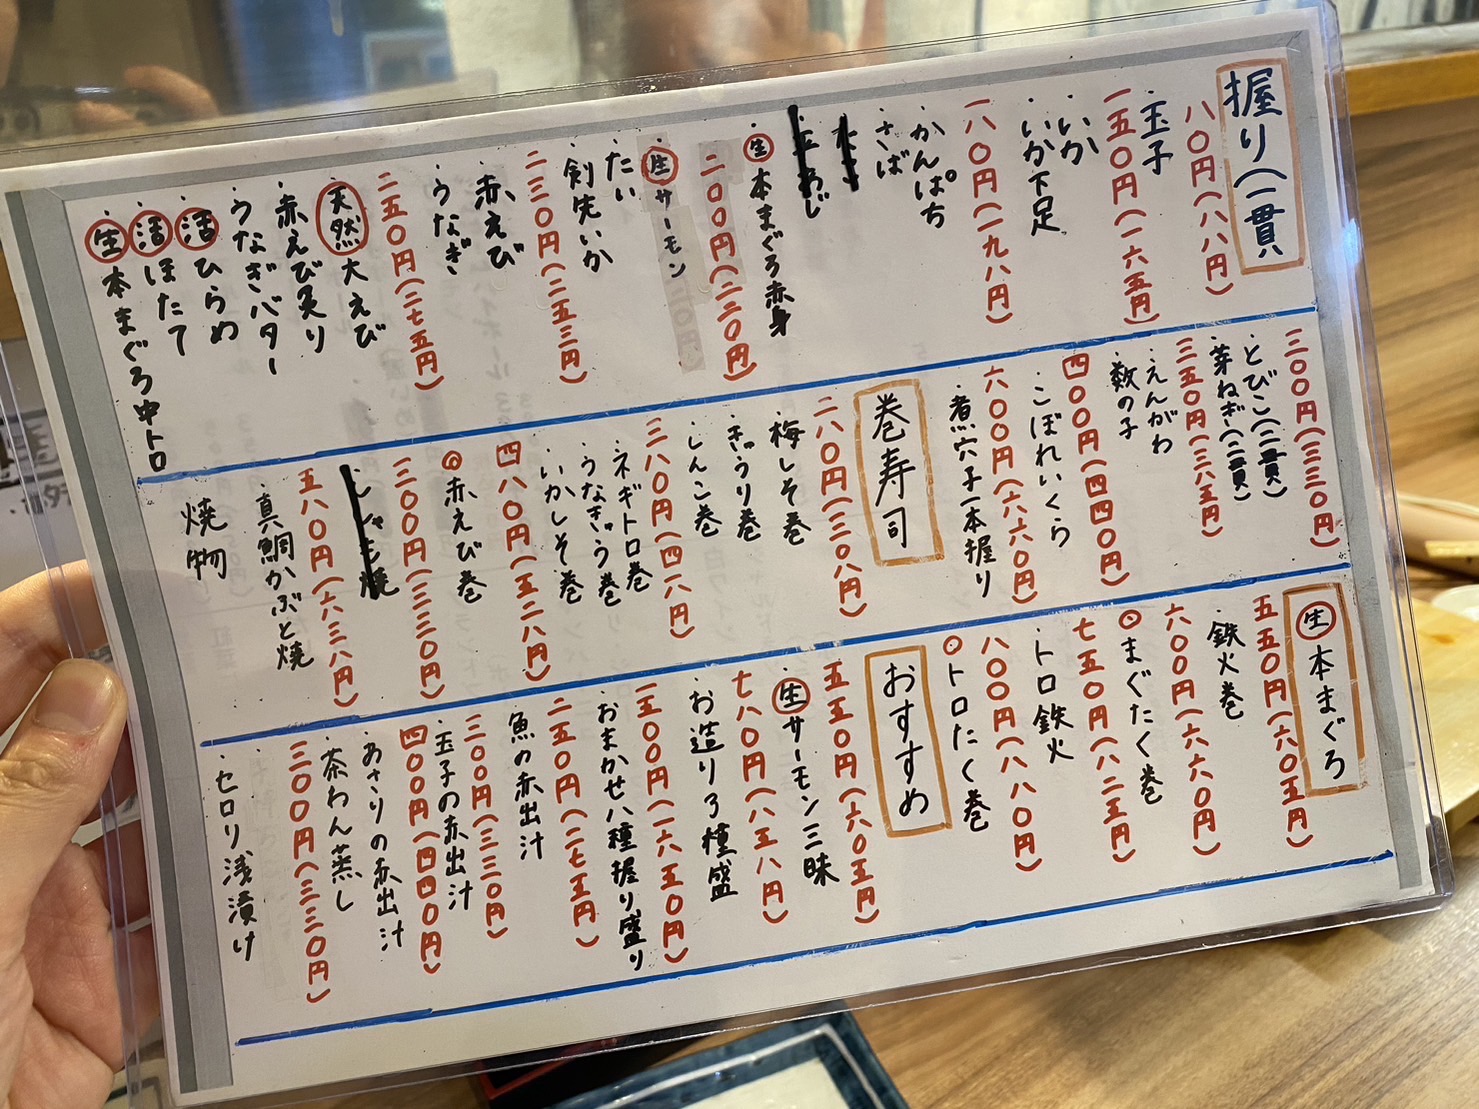 握り(一貫)
八〇円(八八円)
・玉子
一五〇円(一六五円)
・いか
・いか下足
一八〇円(一九八円)
・かんぱち
・さば
・生本まぐろ赤身
二〇〇円(二二〇円)
・生サーモン
・たい
・剣先いか
二三〇円(二五三円)
・赤えび
・うなぎ
二五〇円(二七五円)
・天然大えび
・赤えび炙り
・うなぎバター
・活ひらめ
・活ほたて
・生本まぐろ中トロ
三〇〇円(三三〇円)
・とびこ(二貫)
・芽ねぎ(二貫)
三五〇円(三八五円)
・えんがわ
・数の子
四〇〇円(四四〇円)
・こぼれいくら
六〇〇円(六六〇円)
・煮穴子一本握り
巻寿司
二八〇円(三〇八円)
・梅しそ巻
・きゅうり巻
・しんこ巻
三八〇円(四一八円)
・ネギトロ巻
・うなきゅう巻
・いかしそ巻
四八〇円(五二八円)
◎赤えび巻
三〇〇円(三三〇円)
五八〇円(六三八円)
・真鯛かぶと焼
焼物
生本まぐろ
五五〇円(六〇五円)
・鉄火巻
六〇〇円(六六〇円)
◎まぐたく巻
七五〇円(八二五円)
・トロ鉄火
八〇〇円(八八〇円)
◎トロたく巻
おすすめ
五五〇円(六〇五円)
・生サーモン三昧
七八〇円(八五八円)
・お造り3種盛
一五〇〇円(一六五〇円)
・おまかせ八種握り盛り
二五〇円(二七五円)
・魚の赤出汁
三〇〇円(三三〇円)
・玉子の赤出汁
四〇〇円(四四〇円)
・あさりの赤出汁
・茶わん蒸し
三〇〇円(三三〇円)
・セロリ浅漬け